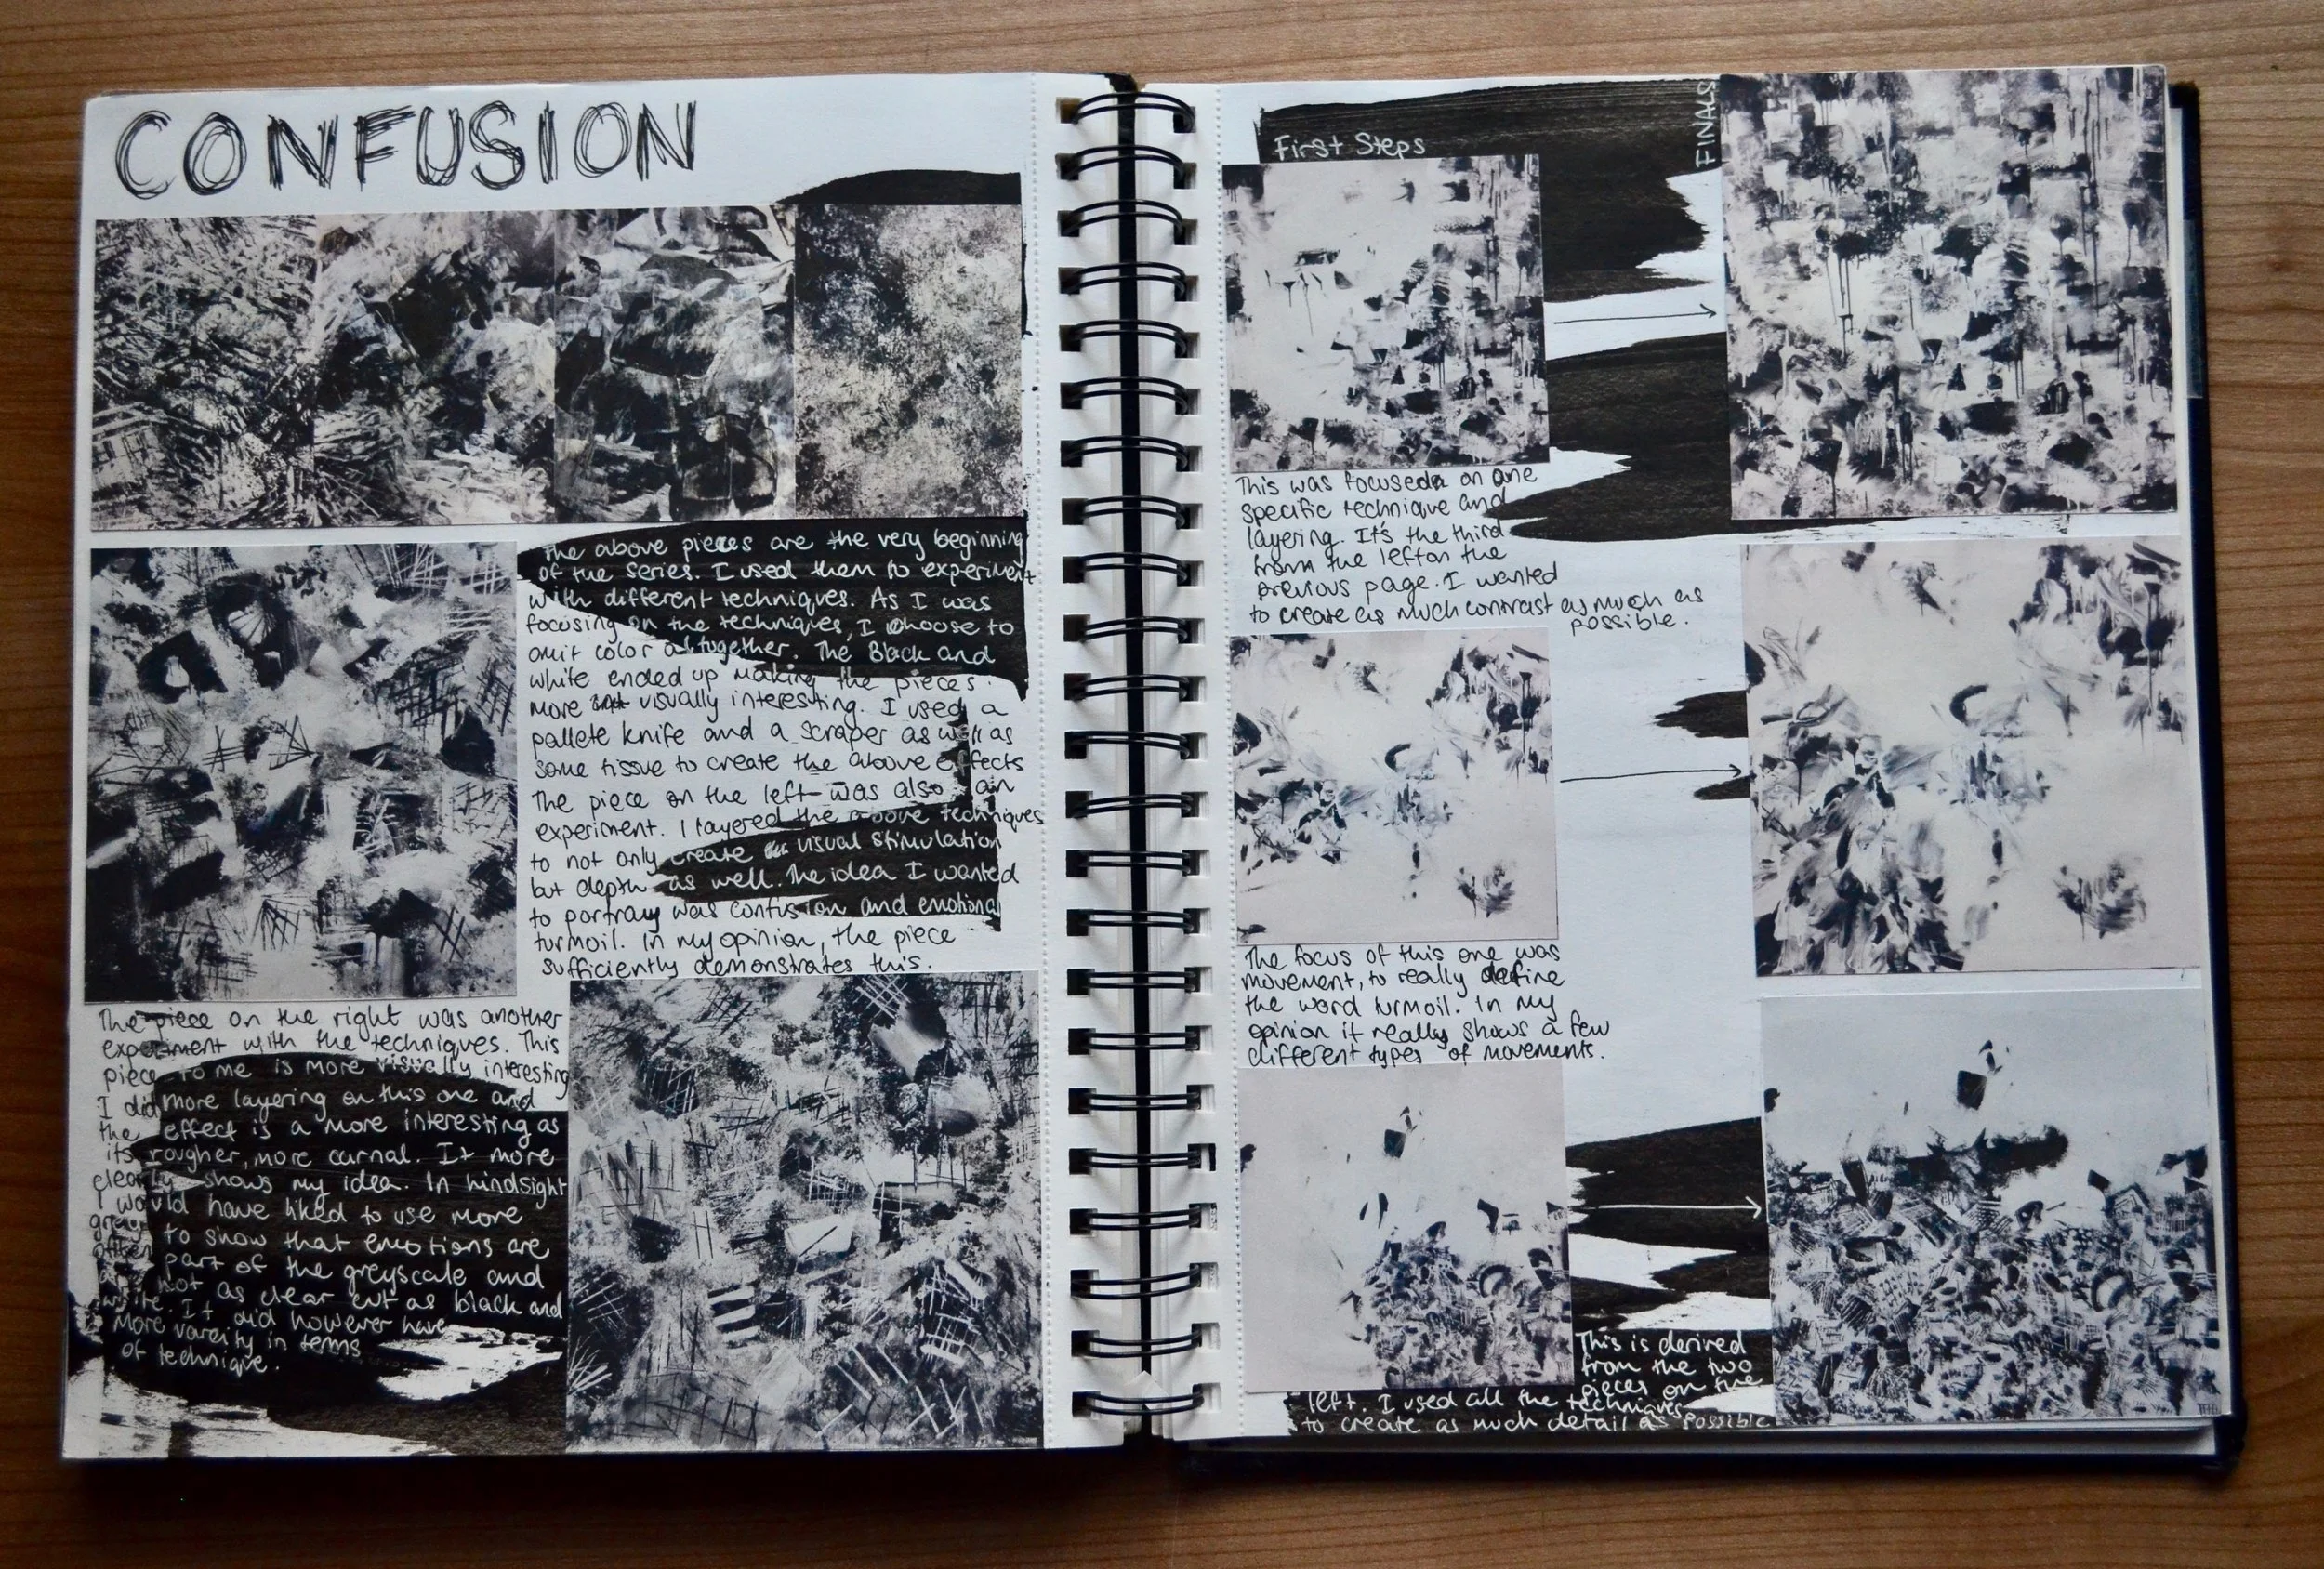 CONFUSION
The above pieces are the very beginning
of the series. I used them to experiment
with different techniques. As I was
focusing on the techniques, I choose to
omit color altogether. The Black and
white ended up making the pieces
more visually interesting. I used a
pallete knife and a scraper as well as
some tissue to create the above effects
The piece on the left was also an
experiment. I layered the above techniques
to not only create visual stimulation
but depth as well. The idea I wanted
to portray was confusion and emotional
turmoil. In my opinion, the piece
sufficiently demonstrates this.
The piece on the right was another
experiment with the techniques. This
piece to me is more visually interesting
I did more layering on this one and
the effect is a more interesting as
its rougher, more carnal. It more
clearly shows my idea. In hindsight
I would have liked to use more
grey to show that emotions are
often part of the greyscale and
are not as clear cut as black and
white. It did however have
more varaity in terms
of technique.
First Steps
FINALS
This was focused on one
specific technique and
layering. It's the third
from the left on the
previous page. I wanted
to create as much contrast as much as
possible.
The focus of this one was
movement, to really define
the word turmoil. In my
opinion it really shows a few
different types of movements.
This is derived
from the two
pieces on the
left. I used all the techniques
to create as much detail as possible